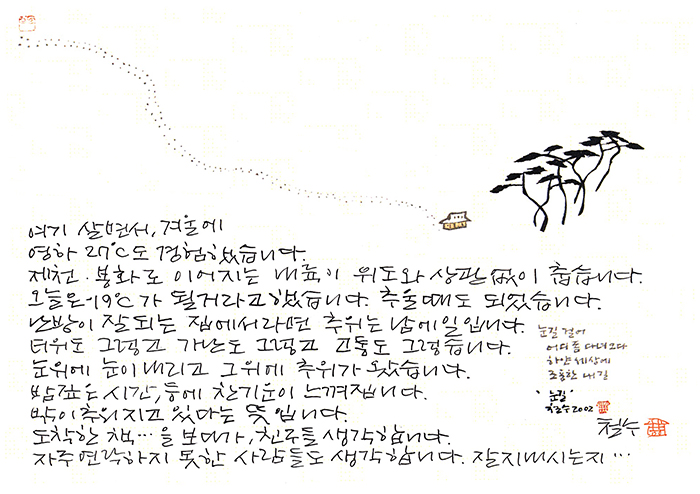 여기 살면서, 겨울에
영하 27℃도 경험했습니다.
제천·봉화로 이어지는 내륙이 위도와 상관없이 춥습니다.
오늘은 -19℃가 될거라고 했습니다. 추울때도 되었습니다.
난방이 잘되는 집에서라면 추위는 남에 일입니다.
더위도 그렇고 가난도 그렇고 고통도 그렇습니다.
눈위에 눈이 내리고 그위에 추위가 왔습니다.
밤깊은 시간, 등에 찬기운이 느껴집니다.
밖이 추워지고 있다는 뜻입니다.
도착한 책…을 보다가, 친구들 생각합니다.
자주 연락하지 못한 사람들도 생각합니다. 잘지내시는지…
눈길 걸어
어디쯤 다녀오다
하얀 세상에
조용한 내길
'눈길'
철수 2002
철수